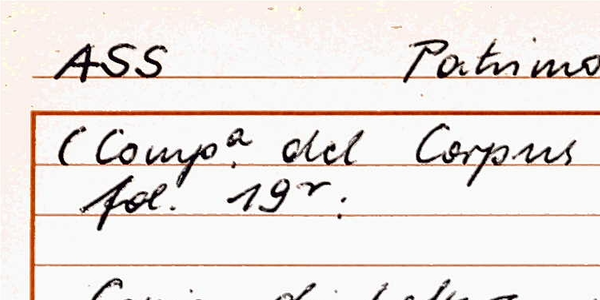 ASS Patrimo
(Compª. del Corpus
fol. 19r: